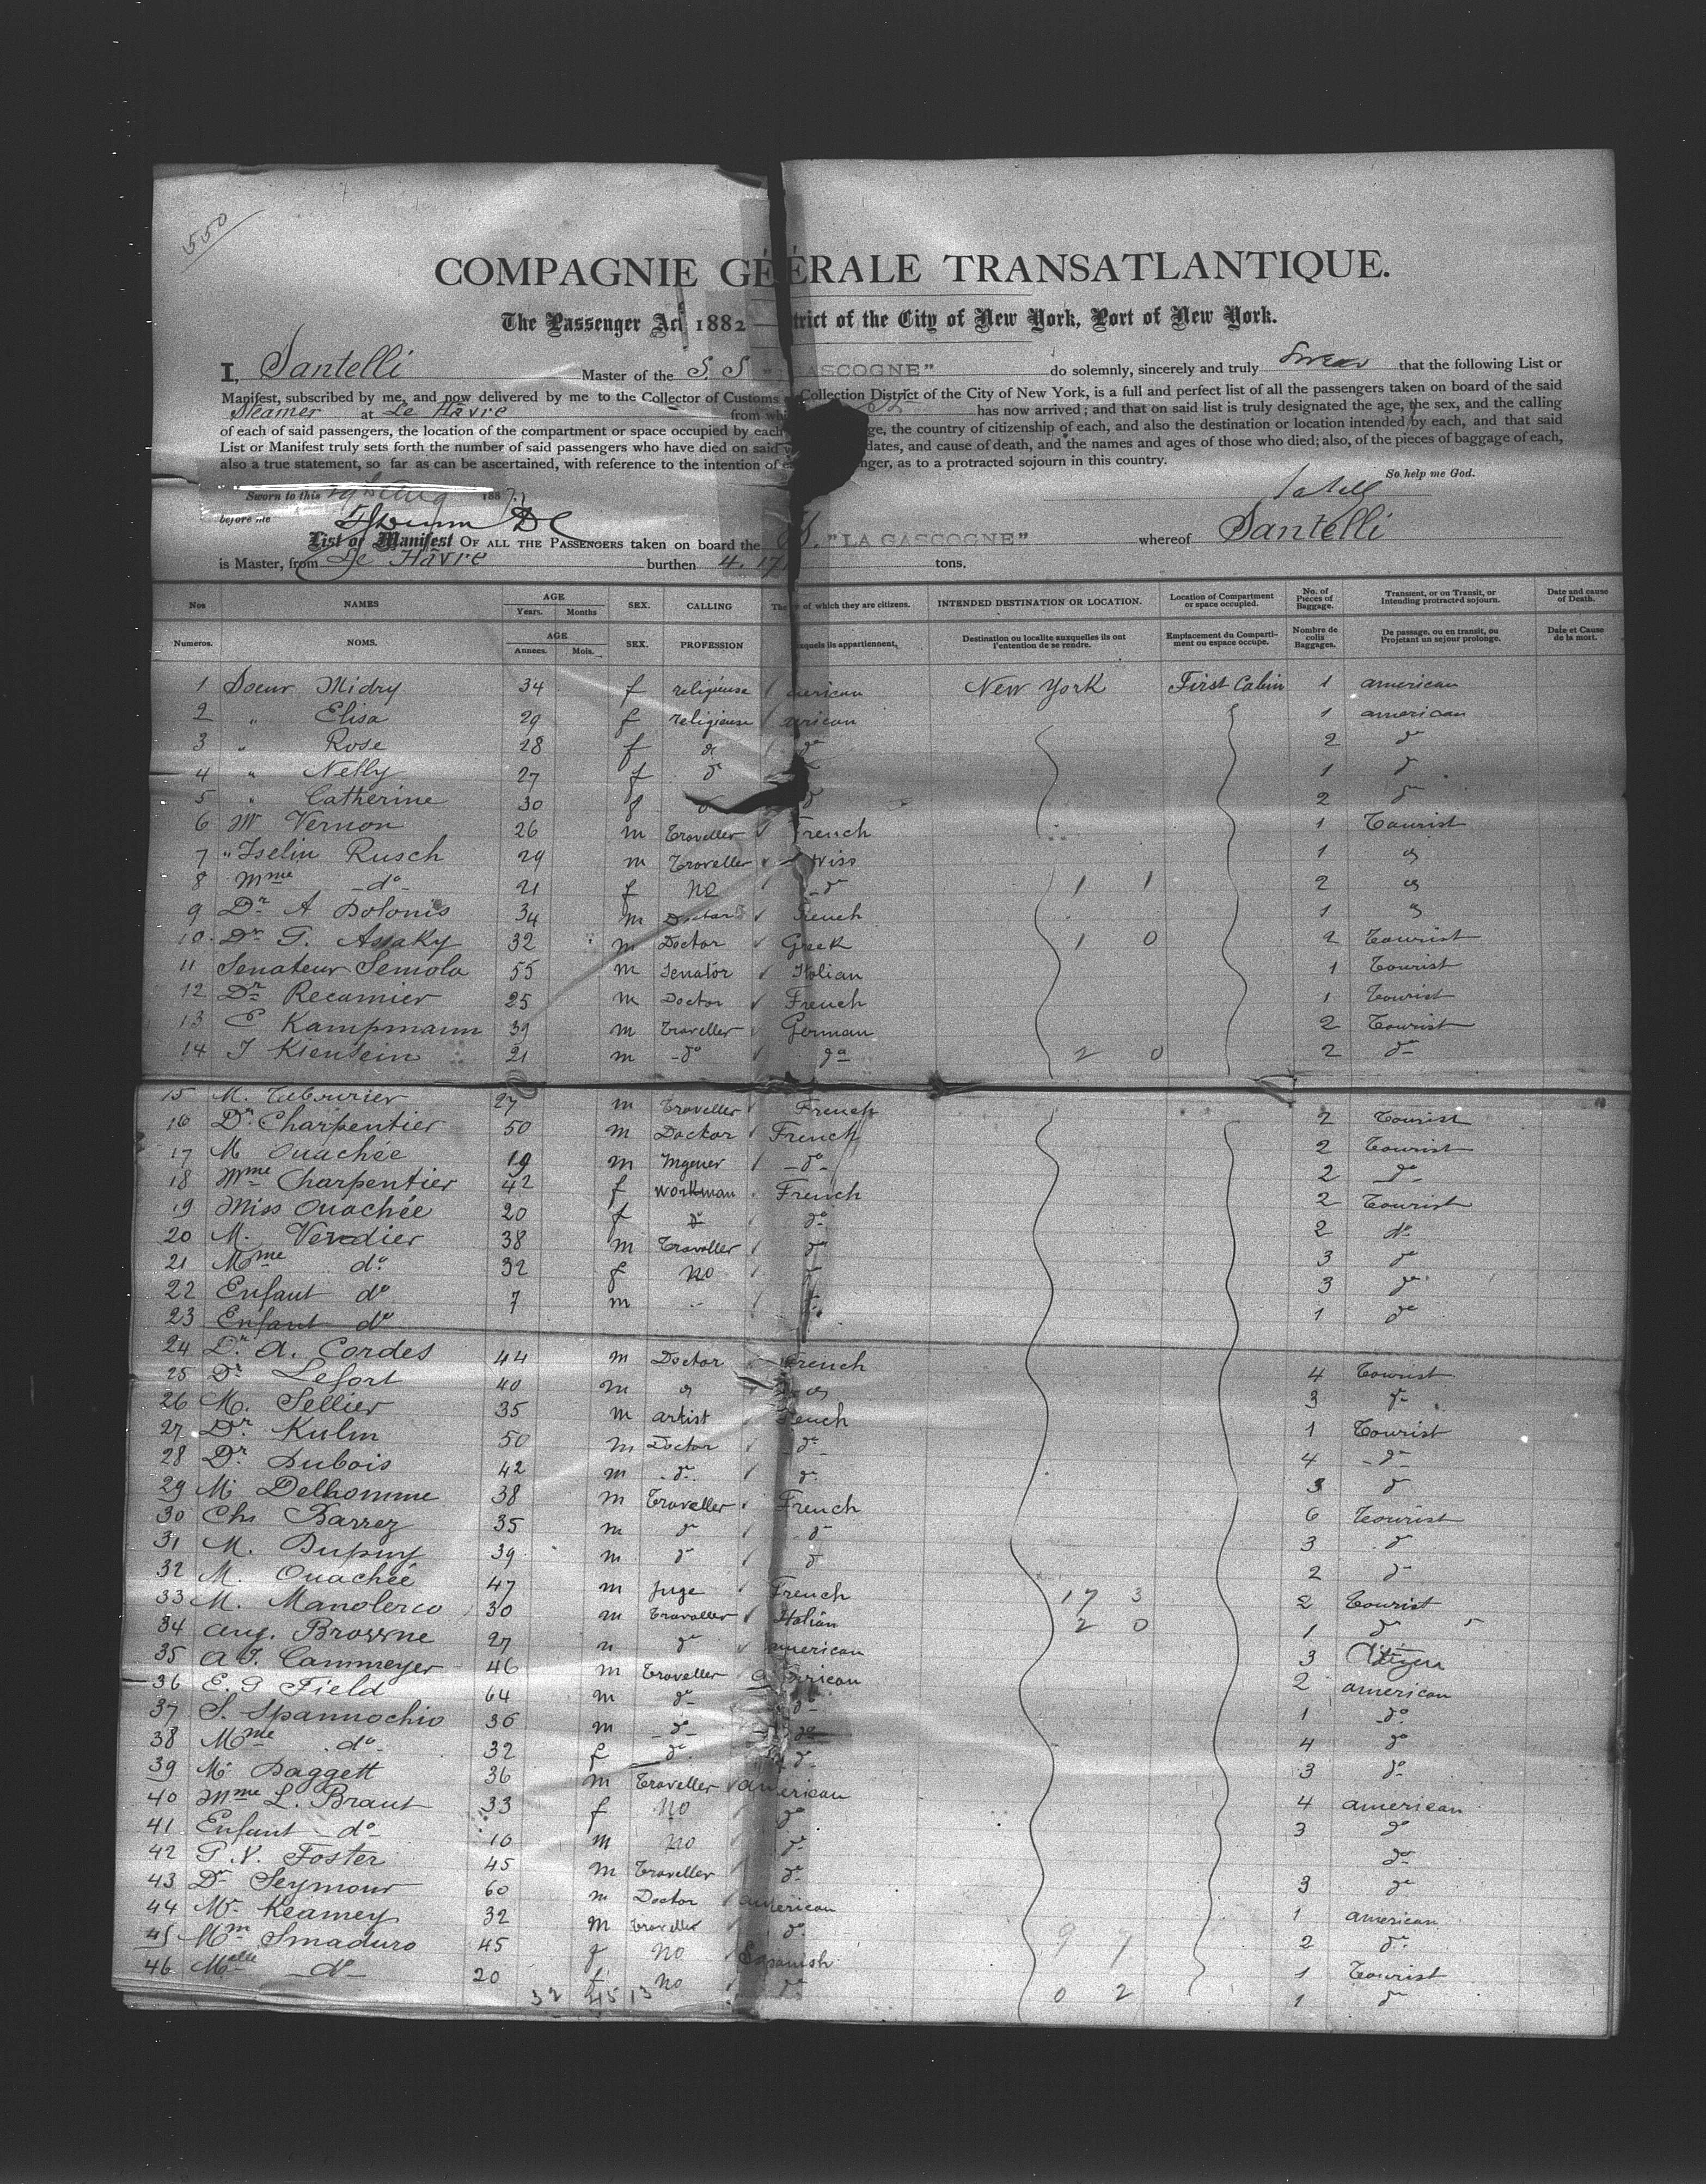 550
COMPAGNIE GÉ ÉRALE TRANSATLANTIQUE.
The Passenger Act 1882 — trict of the City of New York, Port of New York.
I, Santelli Master of the S. S " GASCOGNE" do solemnly, sincerely and truly swear that the following List or
Manifest, subscribed by me, and now delivered by me to the Collector of Customs Collection District of the City of New York, is a full and perfect list of all the passengers taken on board of the said
Steamer at Le Hâvre from whi has now arrived; and that on said list is truly designated the age, the sex, and the calling
of each of said passengers, the location of the compartment or space occupied by each ge, the country of citizenship of each, and also the destination or location intended by each, and that said
List or Manifest truly sets forth the number of said passengers who have died on said v dates, and cause of death, and the names and ages of those who died; also, of the pieces of baggage of each,
also a true statement, so far as can be ascertained, with reference to the intention of e nger, as to a protracted sojourn in this country.
So help me God.
Sworn to this Aug 1887
before me
List or Manifest OF ALL THE PASSENGERS taken on board the S. "LA GASCOGNE" whereof Santelli
is Master, from Le Hâvre burthen 4. 17 tons.
Nos NAMES AGE Years. Months SEX. CALLING The of which they are citizens. INTENDED DESTINATION OR LOCATION. Location of Compartment or space occupied. No. of Pieces of Baggage. Transient, or on Transit, or Intending protracted sojourn. Date and cause of Death.
Numeros. NOMS. AGE Annees. Mois. SEX. PROFESSION squels ils appartiennent, Destination ou localite auxquelles ils ont l'entention de se rendre. Emplacement du Comparti-ment ou espace occupe. Nombre de colis Baggages. De passage, ou en transit, ou Projetant un sejour prolonge. Date et Cause de la mort.
1 Soeur Midry 34 f religieuse erican New York First Cabin 1 american
2 " Elisa 29 f religieuse erican 1 american
3 " Rose 28 f do do 2 do
4 " Nelly 27 f do 1 do
5 " Catherine 30 f do do 2 do
6 Mr Vernon 26 m Traveller French 1 Tourist
7 " Iselin Rusch 29 m Traveller Swiss 1 do
8 Mme do 21 f no do 1 1 2 do
9 Dr A Dolonis 34 m Doctor French 1 do
10 Dr G. Assaky 32 m Doctor Greek 1 0 2 Tourist
11 Senateur Semola 55 m Senator Italian 1 Tourist
12 Dr Recamier 25 m Doctor French 1 Tourist
13 E Kampmann 39 m Traveller German 2 Tourist
14 J Kiensein 21 m do do 2 0 2 do
15 M. Tabourier 27 m Traveller French 2 Tourist
16 Dr Charpentier 50 m Doctor French 2 Tourist
17 M Ouachée 19 m Ingener do 2 do
18 Mme Charpentier 42 f workman French 2 Tourist
19 Miss Ouachée 20 f do do 2 do
20 M. Verdier 38 m Traveller do 3 do
21 Mme do 32 f no 3 do
22 Enfant do 7 m 1 do
23 Enfant do
24 Dr A. Cordes 44 m Doctor French 4 Tourist
25 Dr Lefort 40 m do do 3 do
26 M. Sellier 35 m artist French 1 Tourist
27 Dr Kulm 50 m Doctor do 4 do
28 Dr Dubois 42 m do do 3 do
29 Mr Delhomme 38 m Traveller French 6 Tourist
30 Chs Barrez 35 m do do 3 do
31 M. Dupuy 39 m do do 2 do
32 M. Ouachée 47 m juge French 17 3 2 Tourist
33 M. Manolerco 30 m Traveller Italian 2 0 1 do
34 Aug. Browne 27 m do american 3 Citizen
35 A J. Cammeyer 46 m Traveller american 2 american
36 E. G Field 64 m do do 1 do
37 S. Spannochio 36 m do do 4 do
38 Mme do 32 f do do 3 do
39 Mr Daggett 36 m Traveller american 4 american
40 Mme L. Braut 33 f no do 3 do
41 Enfant do 10 m no do do
42 G. V. Foster 45 m Traveller do 3 do
43 Dr Seymour 60 m Doctor american 1 american
44 Mr Keamey 32 m Traveller do 9 7 2 do
45 Mm Smaduro 45 f no Spanish 1 Tourist
46 Melle do 20 f no do 0 2 1 do
32 45 13